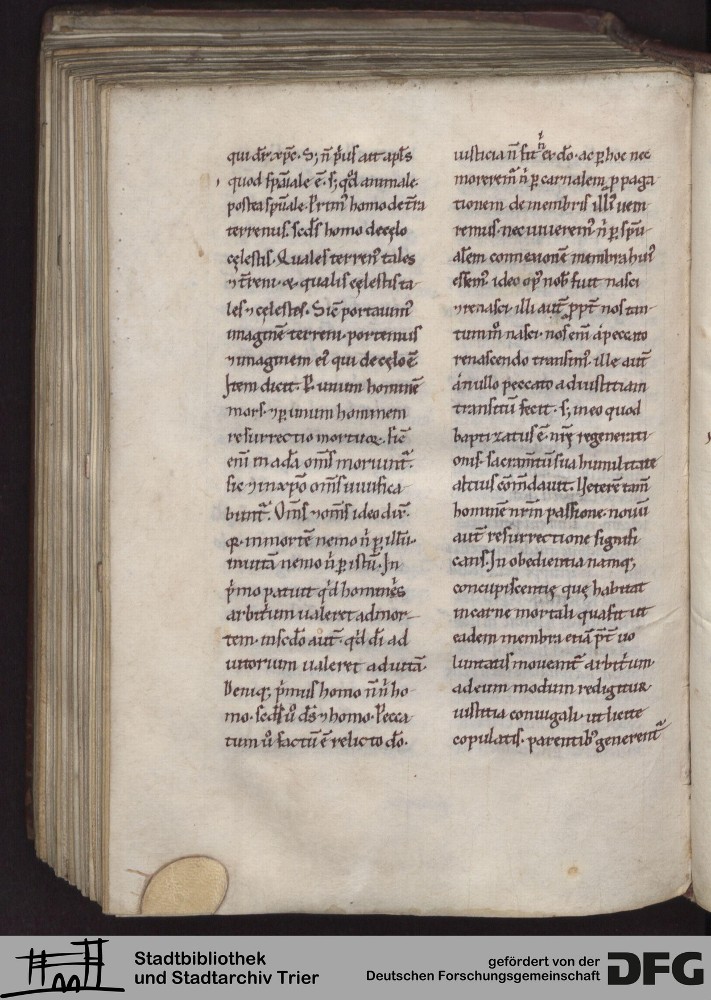 qui dr̄ xp̄c. S; n̄ p̓us ait apl̄s
quod sp̄iale ē. s; qd̄ animale.
postea sp̄uale. Prim᷒ homo de t̄ra
terrenus. scd̄s homo de cęlo
cęlestis. Quales terren᷒ tales
⁊ t̄reni. & qualis cęlestis ta
les ⁊ cęlestes. Sic̄ portauim᷒
imaginē terreni. portemus
⁊ imaginem ei᷒ qui de cęlo ē.
Item dicit. P̲ unum hominē
mors. ⁊ p̲ unum hominem
resurrectio mortuoꝝ. sic̄
eni᷒ in adā om̄s moriunt᷒.
sic ⁊ in xp̄o om̄s uiuifica
bunt᷒. Om̄s ⁊ om̄s ideo dix᷒.
q̲. in mortē nemo n̓ p̲ illū.
in uitā nemo n̓ p̲ istū. In
p̓mo patuit qd̓ hominis
arbit̓um ualeret ad mor-
tem. in scd̄o aut̄. qd̓ dī ad
iutorium ualeret ad uitā.
Deniq; p̓mus homo n̄ n̓ ho
mo. scd̄s u̓ d̄s ⁊ homo. Pecca
tum u̓ factū ē relicto dō.
iusticia n̄ fit ex dō. ac p̲ hoc nec
morerem᷒ n̓ p̲ carnalem p̲paga
tionem de membris illi᷒ ueni
remus. nec uiuerem᷒ n̓ p̲ sp̄u
alem connexionē membra hui᷒
essem᷒. ideo op᷒ nob̓ fuit nasci
⁊ renasci. illi aut̄ p̲pt̄ nos tan
tum m̊ nasci. nos eni᷒ á peccato
renascendo transim᷒. ille aut̄
á nullo peccato ad iustitiam
transitū fecit. s; in eo quod
baptizatus ē. nr̄ę regenerati
onis sacramtū sua humilitate
altius com̄dauit. Ueterē tam̄
hominē nr̄m passione. nouū
aut̄ resurrectione signifi
cans. In obedientia namq;
concupiscentię quę habitat
in carne mortali. qua fit ut
eadem membra etiā p̲t̄ uo
luntatis moueant᷒ arbit̓um.
ad eum modum redigitur
iustitia coniugali. ut licite
copulatis. parentib᷒ generent᷒
Stadtbibliothek
und Stadtarchiv Trier
gefördert von der
Deutschen Forschungsgemeinschaft
DFG